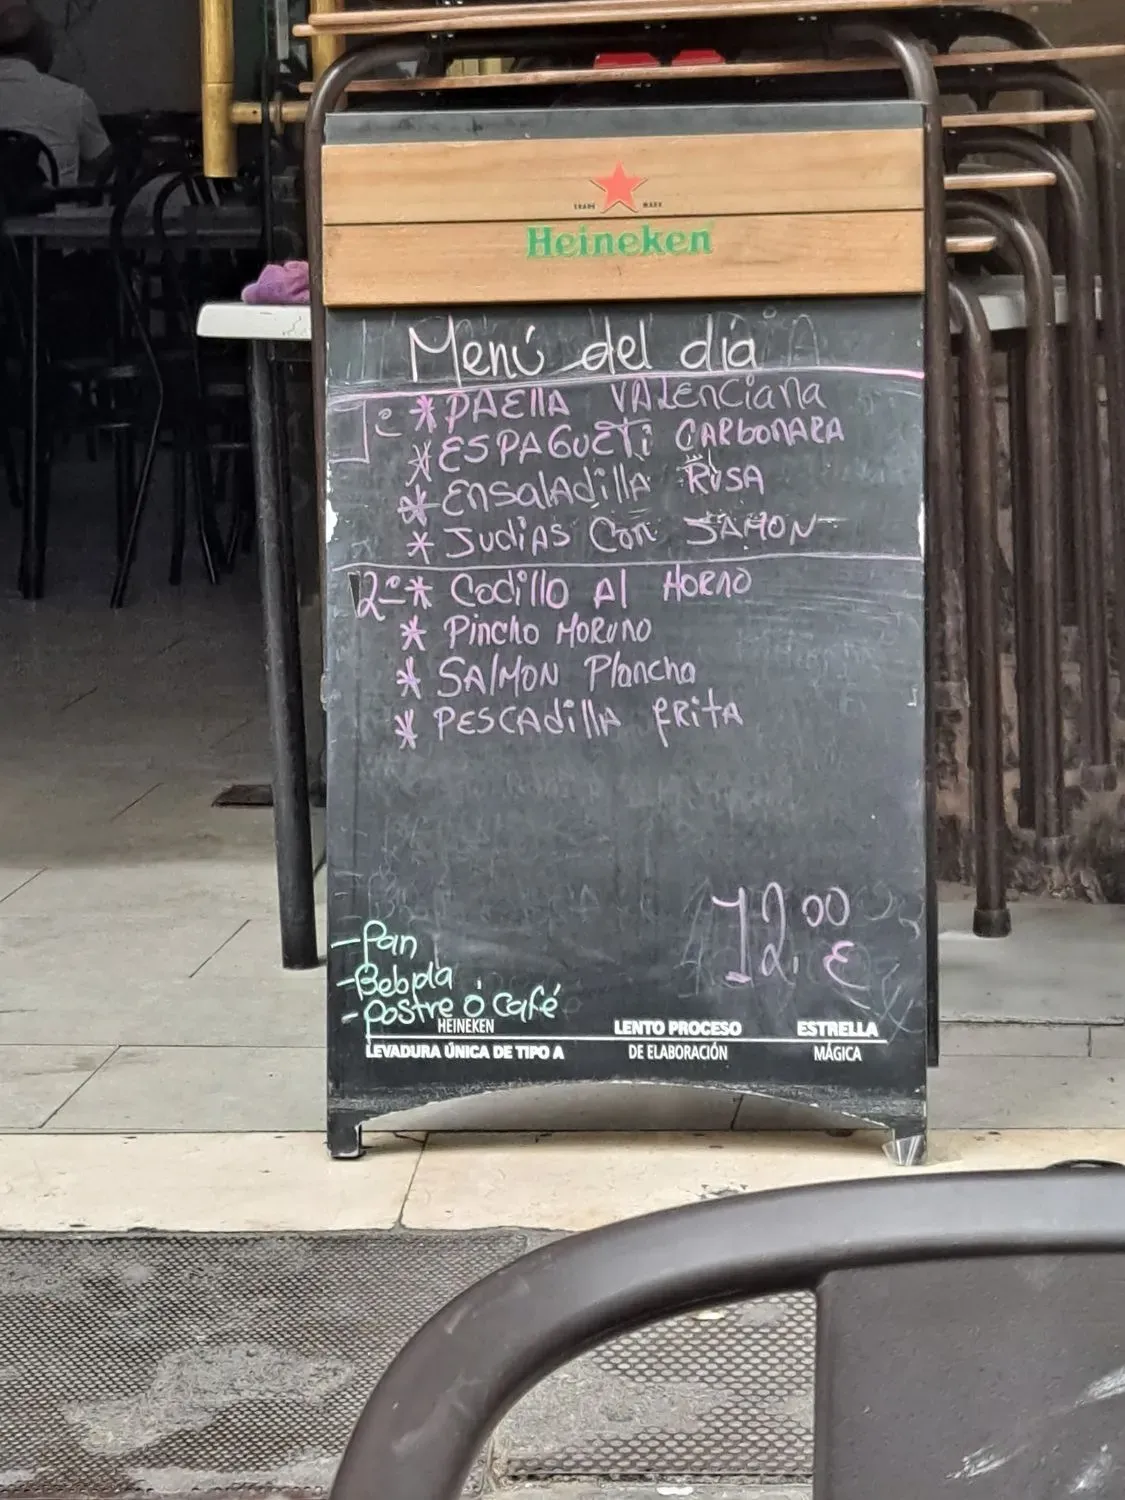 TRADE MARK
Heineken
Menú del día
1º * PAEllA VALENciaNa
* ESPAGUETi CARbONARA
* ENSalAdillA RUSA
* JUdiAS CON JAMON
2º * Codillo Al HORNO
* Pincho MORUNO
* SAlMON Plancha
* PESCAdillA fRitA
12,00 €
-Pan
-Bebida
-Postre ó café
HEINEKEN LENTO PROCESO ESTRELLA
LEVADURA ÚNICA DE TIPO A DE ELABORACIÓN MÁGICA